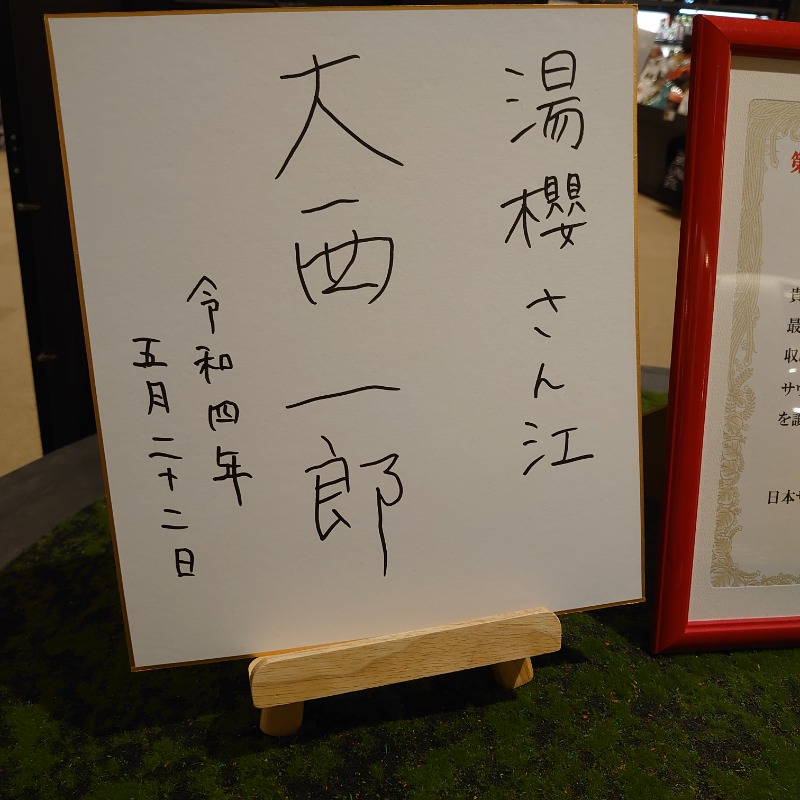 湯櫻さん江
大西一郎
令和四年
五月二十二日
第
貴
最
収
サウ
を
日本サ